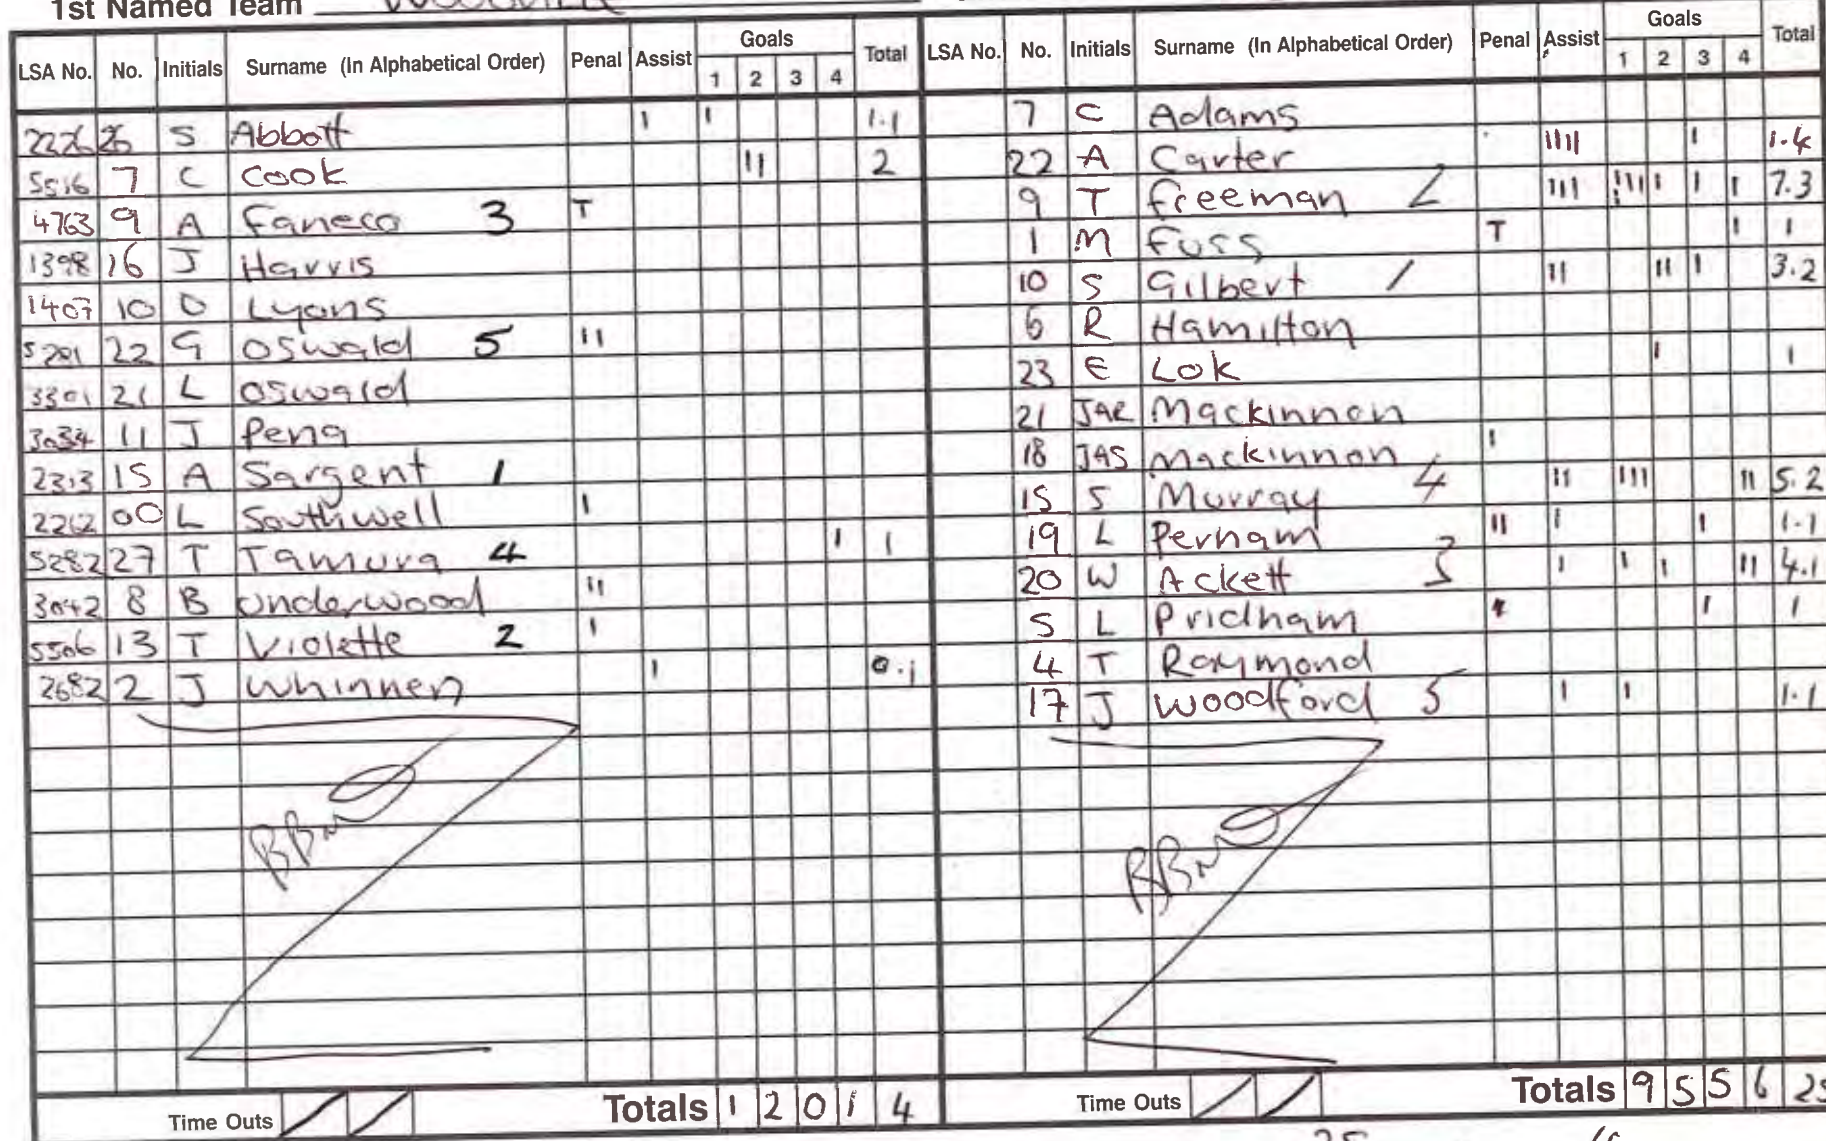 1st Named Team
LSA No. No. Initials Surname (In Alphabetical Order) Penal Assist Goals 1 2 3 4 Total
2226 26 S Abbott I I 1.1
5516 7 C Cook II 2
4763 9 A Faneco 3 T
1398 16 J Harris
1407 10 D Lyons
5281 22 G Oswald 5 II
3301 21 L Oswald
3034 11 J Pena
2313 15 A Sargent 1
2262 00 L Southwell I
5282 27 T Tamura 4 I 1
3042 8 B Underwood II
5506 13 T Violette 2 I
2682 2 J Whinnen I 0.1
Time Outs / / Totals 1 2 0 1 4
LSA No. No. Initials Surname (In Alphabetical Order) Penal Assist Goals 1 2 3 4 Total
7 C Adams
22 A Carter IIII I 1.4
9 T Freeman 2 III IIIII I I 7.3
1 M Fuss T I 1
10 S Gilbert 1 II II I 3.2
6 R Hamilton
23 E Lok I 1
21 JAR Mackinnon
18 JAS Mackinnon I
15 S Murray 4 II III II 5.2
19 L Perham II I I 1.1
20 W Ackett 3 I I I II 4.1
5 L Pridham I 1
4 T Raymond
17 J Woodford 5 I I 1.1
Time Outs / / Totals 9 5 5 6 25